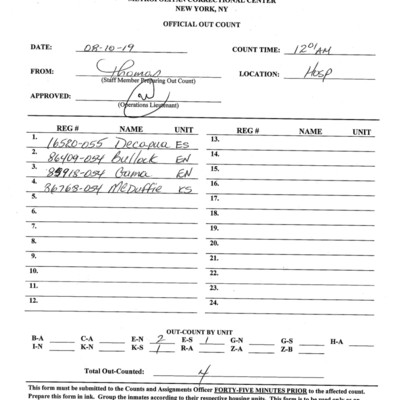 METROPOLITAN CORRECTIONAL CENTER
NEW YORK, NY
OFFICIAL OUT COUNT
DATE: 08-10-19 COUNT TIME: 12:01AM
FROM: Thomas LOCATION: Hosp
(Staff Member Preparing Out Count)
APPROVED:
(Operations Lieutenant)
REG # NAME UNIT REG # NAME UNIT
1. 16520-055 Decapua ES 13.
2. 86409-054 Bullock EN 14.
3. 85918-054 EN 15.
4. 86768-054 McDuffie KS 16.
5. 17.
6. 18.
7. 19.
8. 20.
9. 21.
10. 22.
11. 23.
12. 24.
OUT-COUNT BY UNIT
B-A C-A E-N 2 E-S 1 G-N G-S H-A
I-N K-N K-S 1 R-A Z-A Z-B
Total Out-Counted: 4
This form must be submitted to the Counts and Assignments Officer FORTY-FIVE MINUTES PRIOR to the affected count.
Prepare this form in ink. Group the inmates according to their respective housing units. This form is to be used only as an